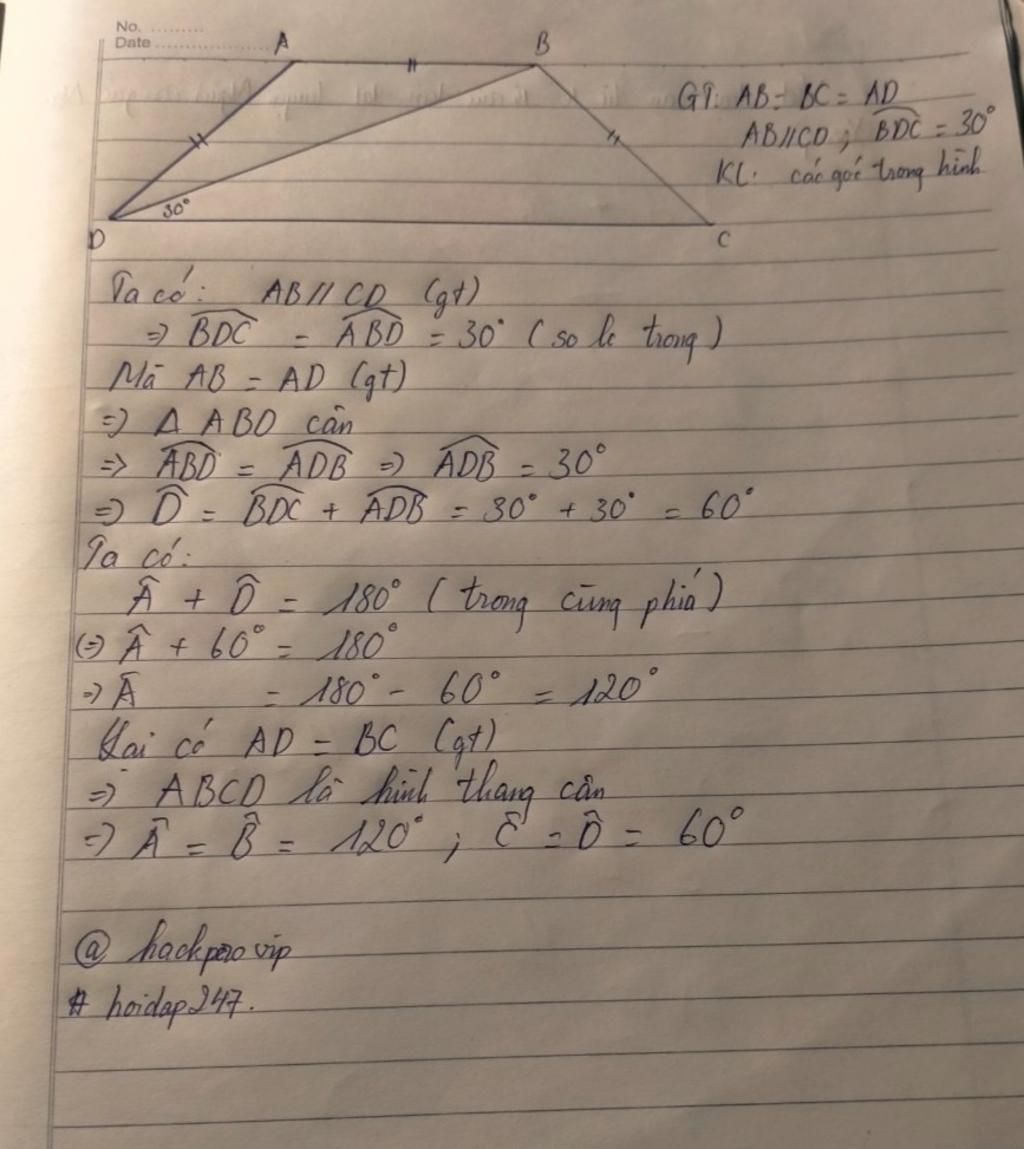 No. ..........
Date ....................
A
B
30°
D
C
GT: AB = BC = AD
AB//CD ; BDC = 30°
KL: các góc trong hình
Ta có: AB // CD (gt)
=> BDC = ABD = 30° (so le trong)
Mà AB = AD (gt)
=> Δ ABD cân
=> ABD = ADB => ADB = 30°
=> D̂ = BDC + ADB = 30° + 30° = 60°
Ta có:
Â + D̂ = 180° (trong cùng phía)
(=) Â + 60° = 180°
=> Â = 180° - 60° = 120°
Lại có AD = BC (gt)
=> ABCD là hình thang cân
=> Â = B̂ = 120° ; Ĉ = D̂ = 60°
@ hackperovip
# hoidap247.